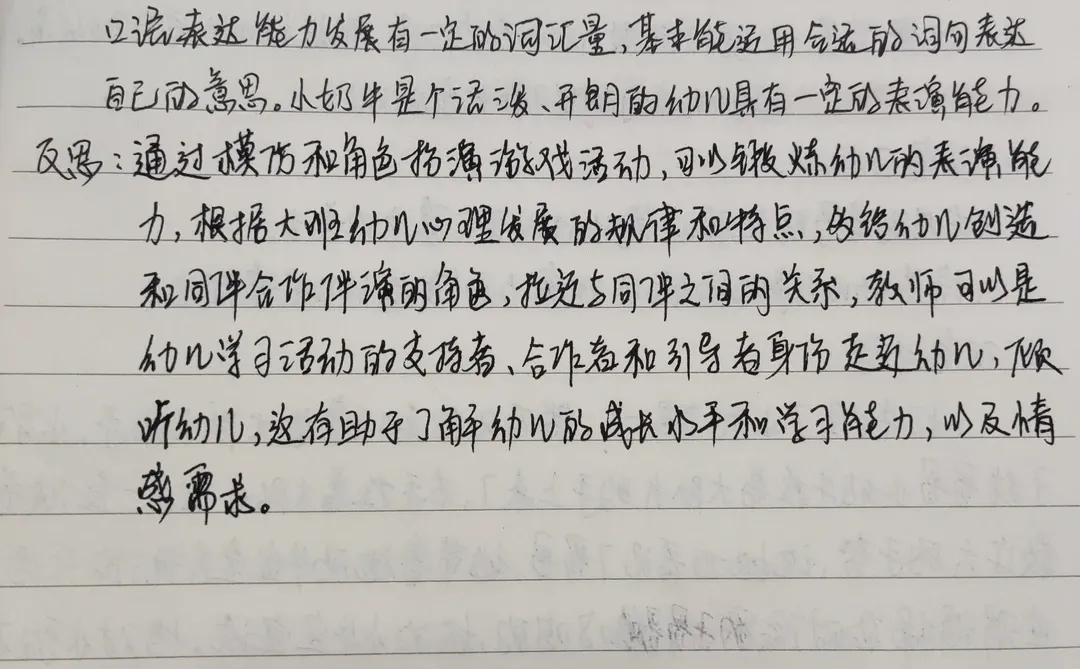 口语表达能力发展有一定的词汇量,基本能运用合适的词句表达
自己的意思。小奶牛是个活泼、开朗的幼儿具有一定的表演能力。
反思:通过模仿和角色扮演游戏活动,可以锻炼幼儿的表演能
力,根据大班幼儿心理发展的规律和特点,多给幼儿创造
和同伴合作伴演的角色,拉近与同伴之间的关系,教师可以是
幼儿学习活动的支持者、合作者和引导者身份走近幼儿,倾
听幼儿,这有助于了解幼儿的成长水平和学习能力,以及情
感需求。